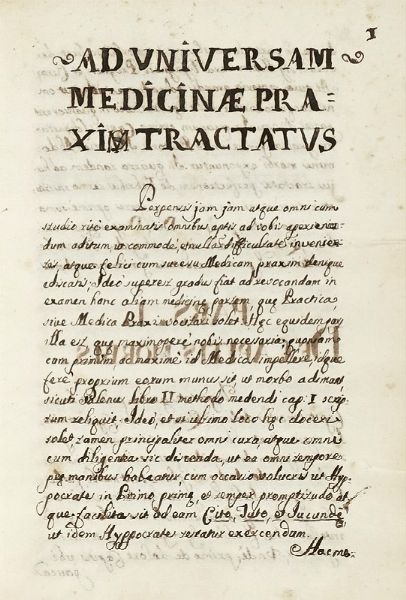 1
AD VNIVERSAM
MEDICINÆ PRA=
XIM TRACTATVS
Perpensis jam jam atque omni cum
studio ritè examinatis omnibus aptis ad vobis aperien
dum aditum ut commodè, et nulla difficultate invenien
tis atque felici cum sucessu Medicam praxim denique
ediscatis; Ideo superest gradus fiat ad resecandam in
examen hanc aliam medicinæ partem, quę Practica
sive Medica Praxis vocitari solet. Hęc ejusdem par
illa est, quę maximoperè nobis necessaria; quoniam
cum primum ac maximè id Medico impellere, isque
fere proprium eorum munus sit, ut morbo
sicut Galenus libro II methodo medendi cap: I scrip
tum reliquit. Ideo, et si ultimo loco hęc doceri
solet, tamen principaliter omni cura, atque omni
cum diligentia sic discenda, ut ea omni tempore
pre manibus habeatur, cum occasio volucris ut Hyp
pocrate in Primo prime, et semper promptitudo at
que facilitas sit ad eam Cito, Tuto, et Jucundè
ut idem Hyppocrates testatur exercendam.
Hacme